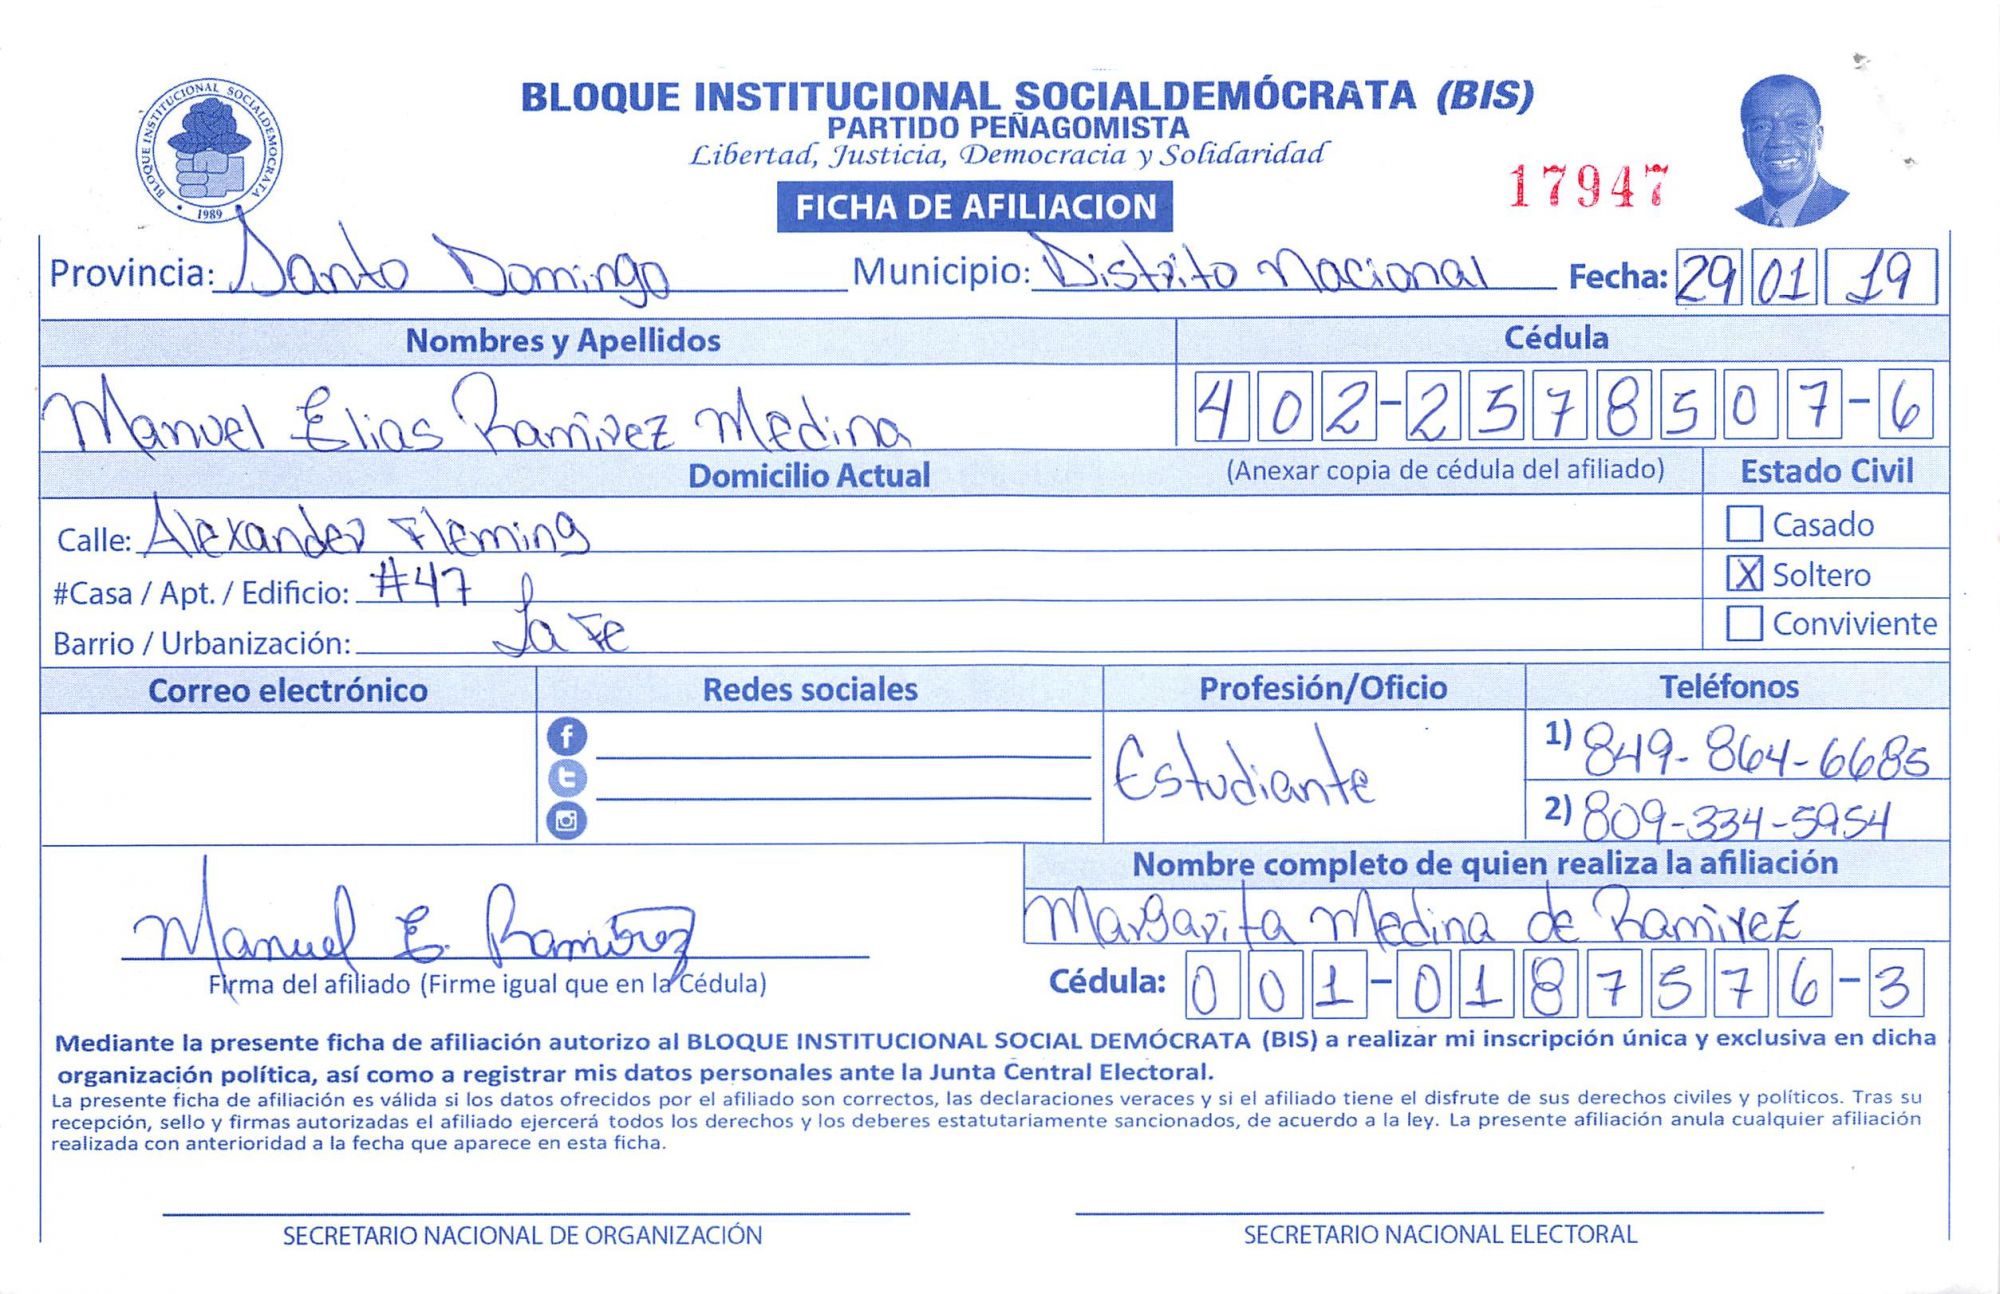 BLOQUE INSTITUCIONAL SOCIALDEMOCRATA
1989
BLOQUE INSTITUCIONAL SOCIALDEMÓCRATA (BIS)
PARTIDO PEÑAGOMISTA
Libertad, Justicia, Democracia y Solidaridad
17947
FICHA DE AFILIACION
Provincia: Santo Domingo Municipio: Distrito Nacional Fecha: 29 01 19
Nombres y Apellidos Cédula
Manuel Elias Ramirez Medina 402-2578507-6
Domicilio Actual (Anexar copia de cédula del afiliado) Estado Civil
Calle: Alexander Fleming Casado
#Casa / Apt. / Edificio: #47 X Soltero
Barrio / Urbanización: La Fe Conviviente
Correo electrónico Redes sociales Profesión/Oficio Teléfonos
Estudiante 1) 849-864-6685
2) 809-334-5954
Nombre completo de quien realiza la afiliación
Manuel E. Ramirez Margarita Medina de Ramirez
Firma del afiliado (Firme igual que en la Cédula) Cédula: 001-0187576-3
Mediante la presente ficha de afiliación autorizo al BLOQUE INSTITUCIONAL SOCIAL DEMÓCRATA (BIS) a realizar mi inscripción única y exclusiva en dicha
organización política, así como a registrar mis datos personales ante la Junta Central Electoral.
La presente ficha de afiliación es válida si los datos ofrecidos por el afiliado son correctos, las declaraciones veraces y si el afiliado tiene el disfrute de sus derechos civiles y políticos. Tras su
recepción, sello y firmas autorizadas el afiliado ejercerá todos los derechos y los deberes estatutariamente sancionados, de acuerdo a la ley. La presente afiliación anula cualquier afiliación
realizada con anterioridad a la fecha que aparece en esta ficha.
SECRETARIO NACIONAL DE ORGANIZACIÓN SECRETARIO NACIONAL ELECTORAL